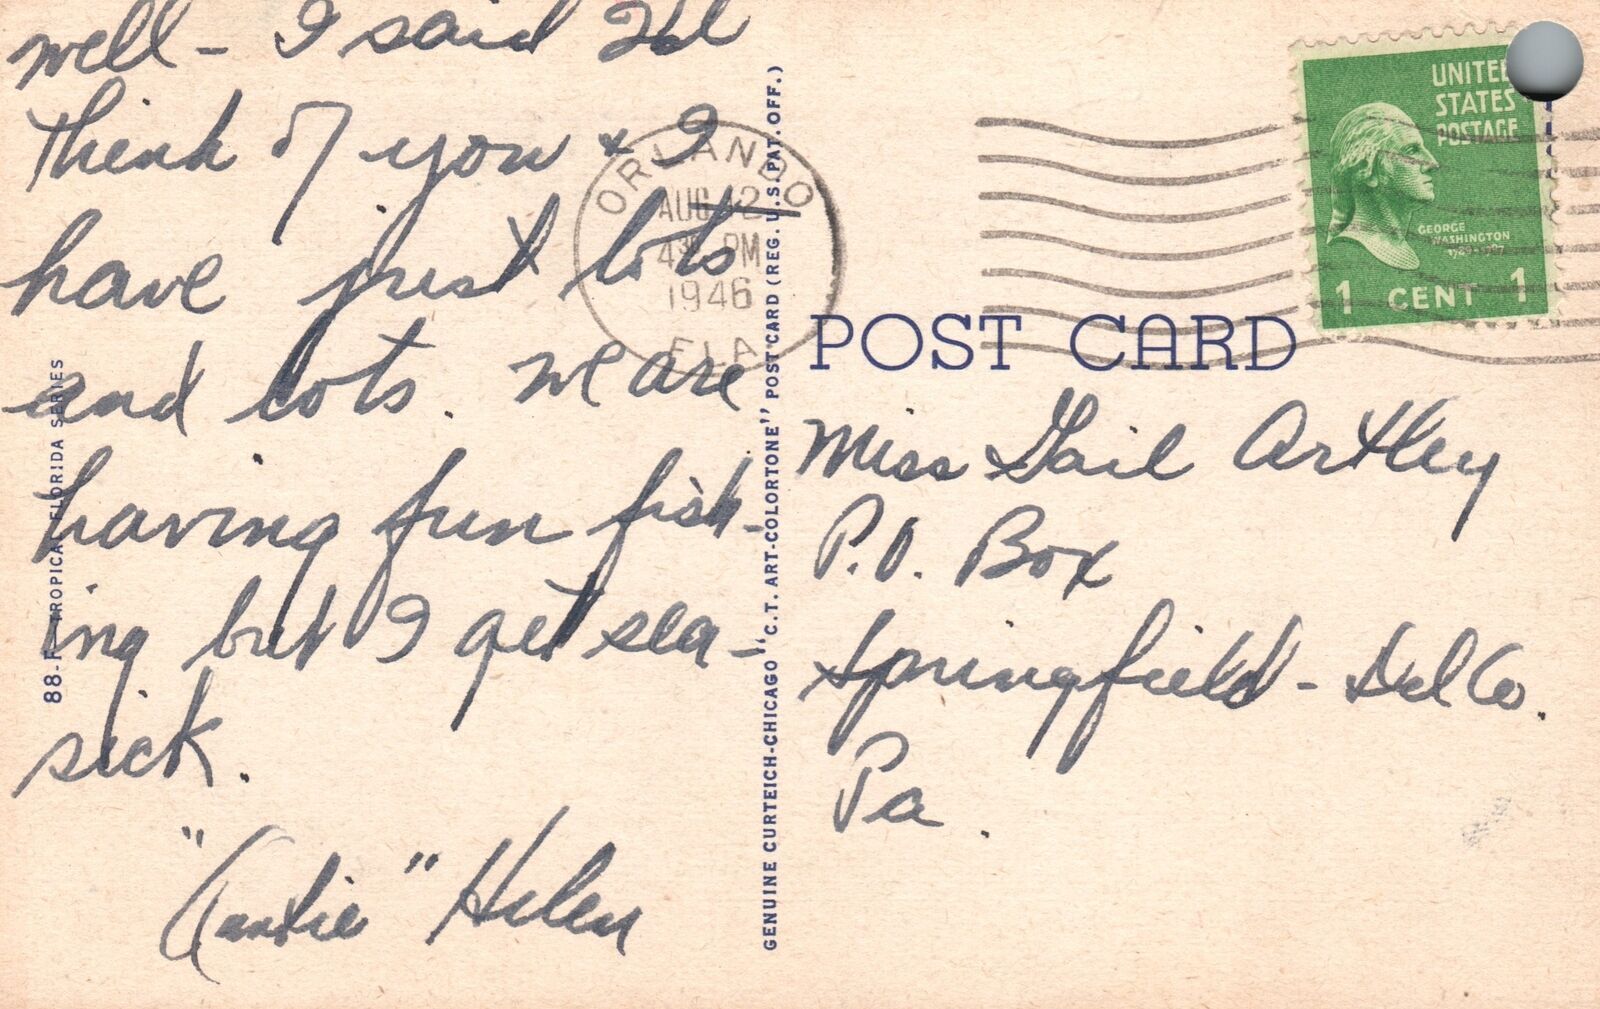 well - I said I'd
think of you & I
have just lots
and lots. We are
having fun fish-
ing but I get sea-
sick.
"Auntie" Helen
88-F-TROPICAL FLORIDA SERIES
GENUINE CURTEICH-CHICAGO "C.T. ART-COLORTONE" POST CARD (REG. U.S. PAT. OFF.)
ORLANDO
AUG 12
4 30 PM
1946
FLA
UNITED
STATES
POSTAGE
GEORGE
WASHINGTON
1 CENT 1
POST CARD
Miss Gail Artley
P.O. Box
Springfield - Del Co.
Pa.